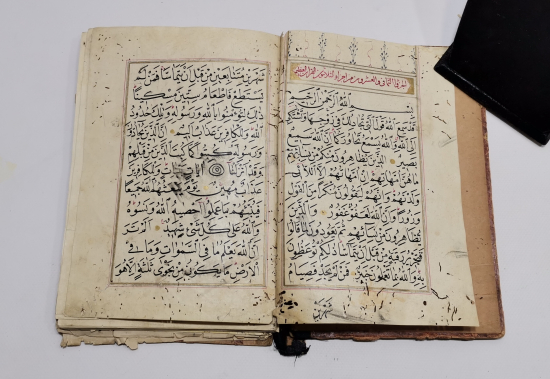 بسم الله الرحمن الرحيم
قد سمع الله قول التي تجادلك في زوجها وتشتكي
الى الله والله يسمع تحاوركما ان الله سميع
بصير الذين يظاهرون منكم من نسائهم
ما هن امهاتهم ان امهاتهم الا اللائي
ولدنهم وانهم ليقولون منكرا من القول
وزورا وان الله لعفو غفور والذين
يظاهرون من نسائهم ثم يعودون لما قالوا
فتحرير رقبة من قبل ان يتماسا ذلكم توعظون
به والله بما تعملون خبير فمن لم يجد فصيام
شهرين
شهرين متتابعين من قبل ان يتماسا فمن لم
يستطع فاطعام ستين مسكينا
ذلك لتؤمنوا بالله ورسوله وتلك حدود
الله وللكافرين عذاب اليم ان الذين يحادون الله
ورسوله كبتوا كما كبت الذين من قبلهم
وقد انزلنا آيات بينات وللكافرين
عذاب مهين يوم يبعثهم الله جميعا
فينبئهم بما عملوا احصيه الله ونسوه
والله على كل شئ شهيد الم تر
ان الله يعلم ما في السموات وما في
الارض ما يكون من نجوى ثلثة الا هو